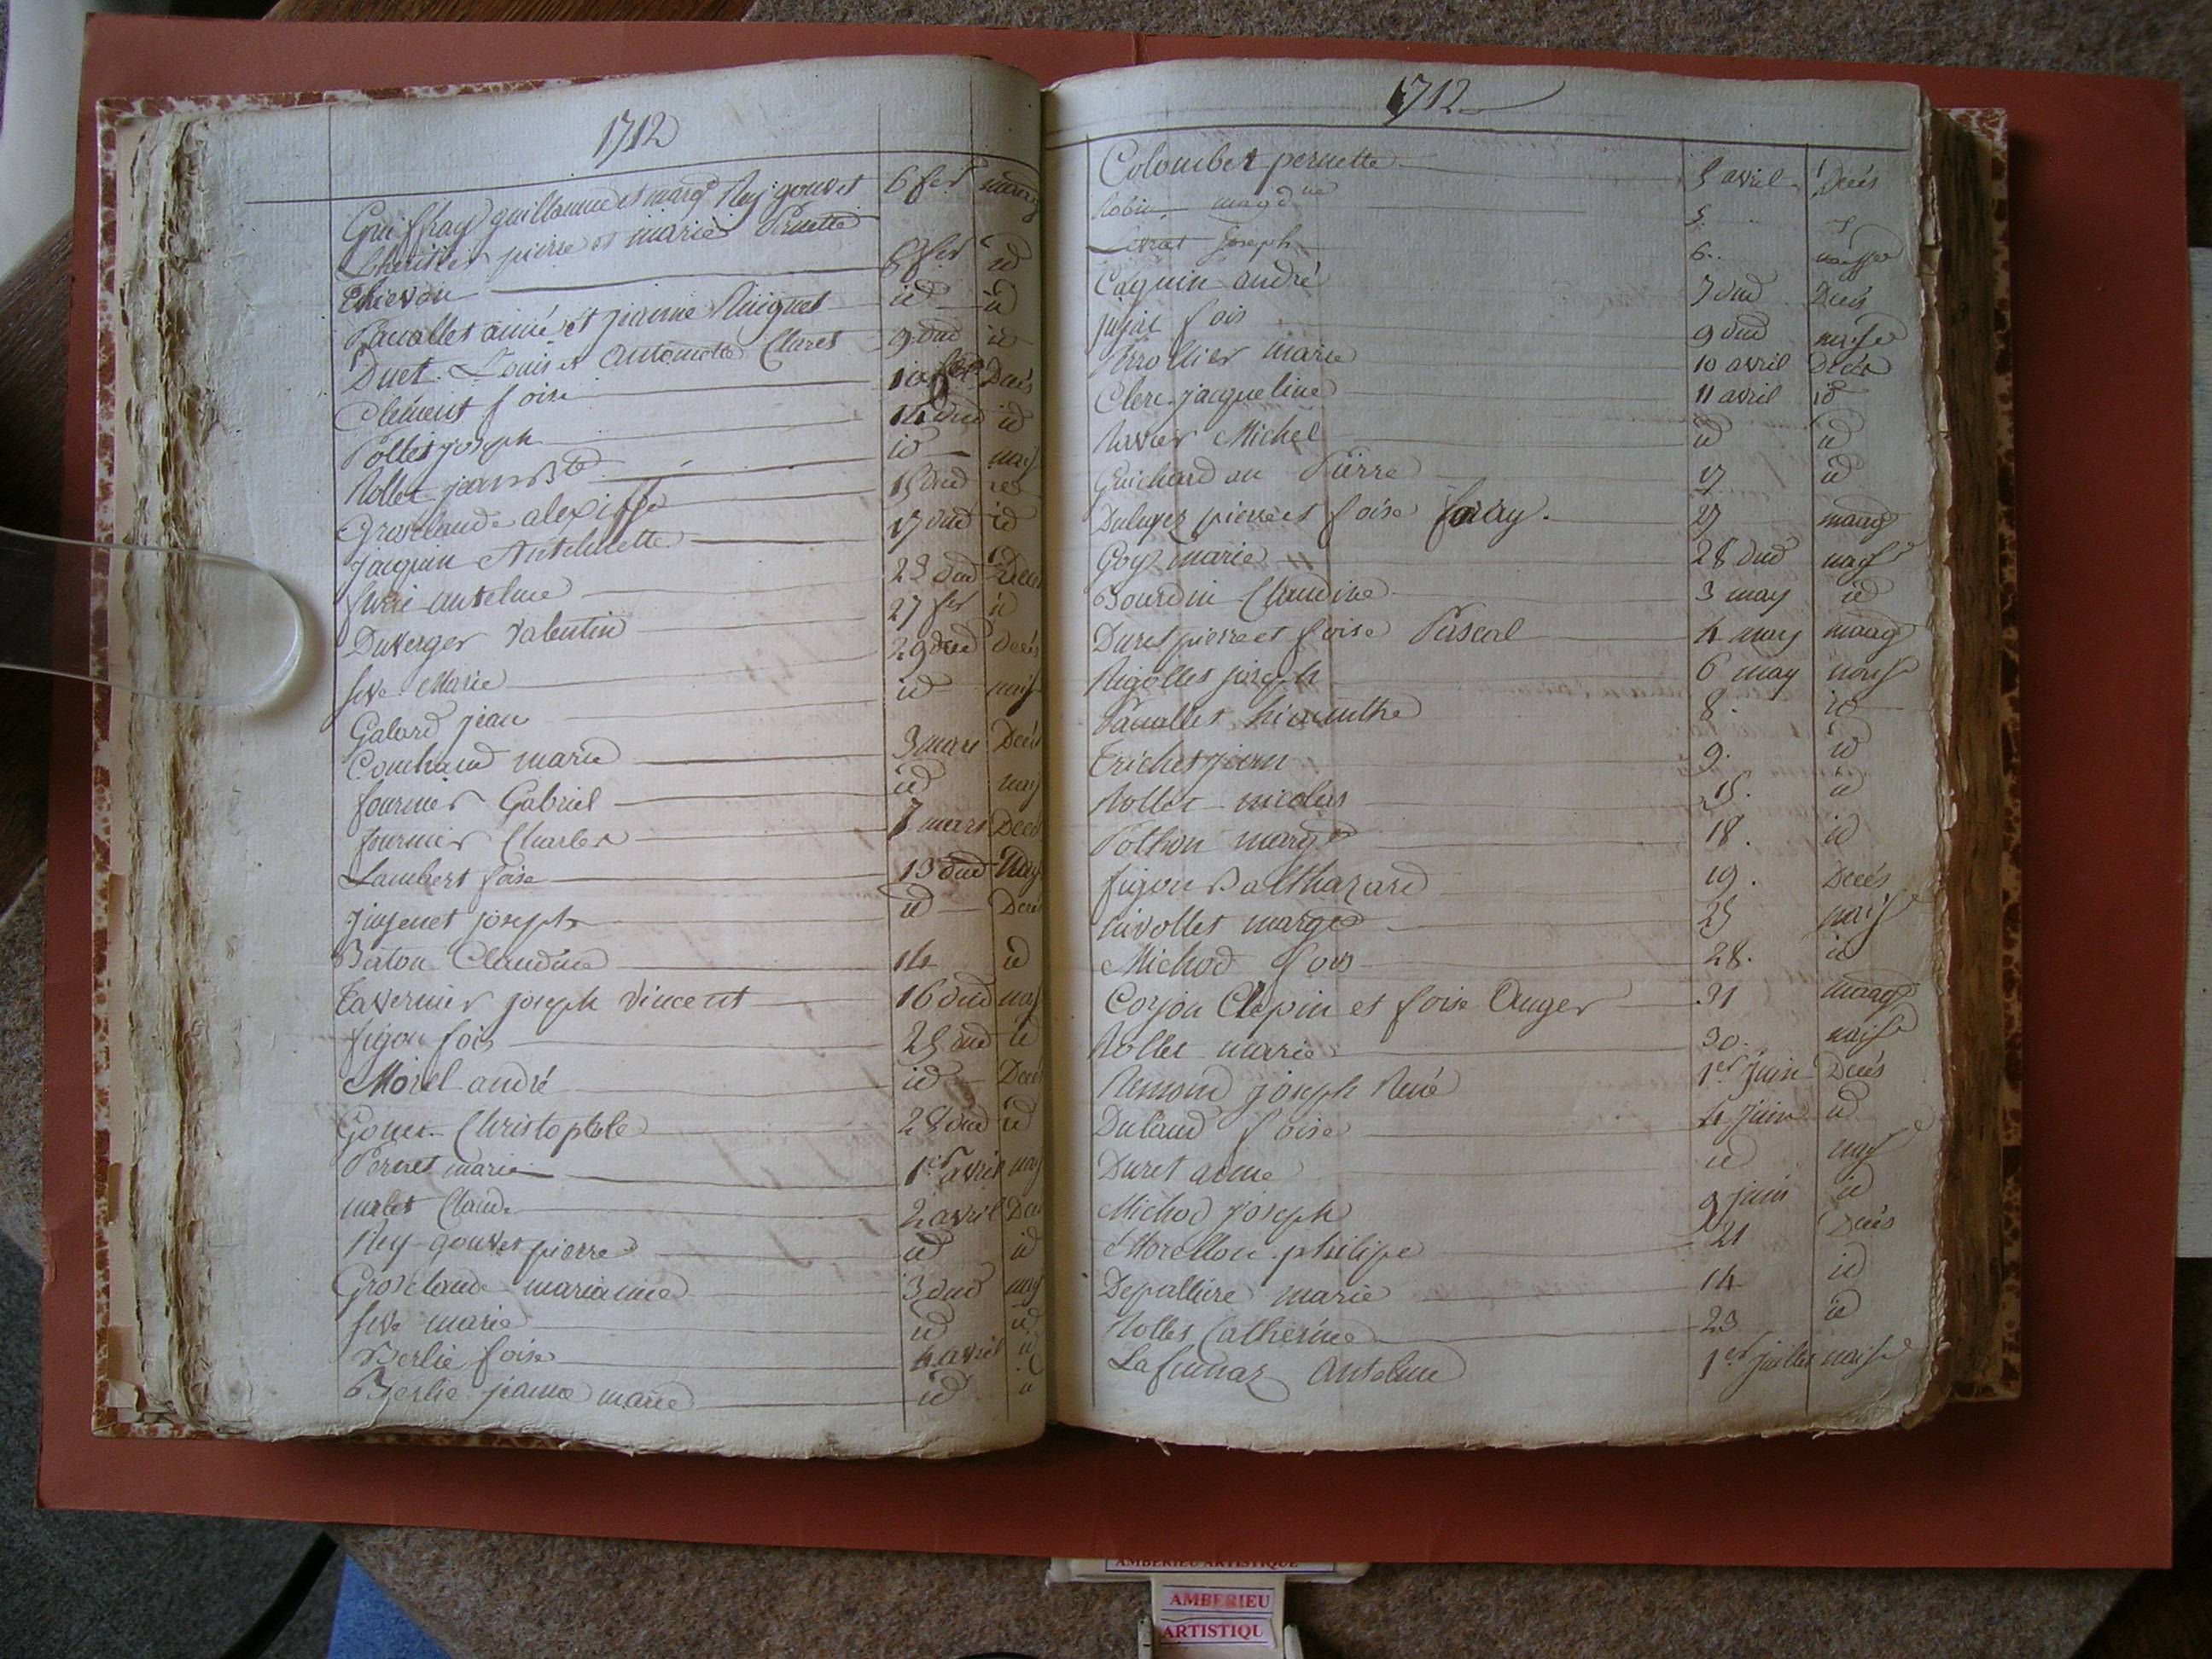 1712
Guiffray guillaume et marg.te Rey gouvet 6 fer mariag
Lheritier pierre et marie Pernette
Thevon 8 fer id
Pacallet aimé et jeanne Quignet id id
Duet Louis et Antoinette Claret 9 dud id
Clément f.oise 10 fer Decés
Pollet joseph 14 dud id
Rollet jean B.te id nais
Groselaude alexisse 15 dud id
jacquin Anthelmette 17 dud id
Antelme 23 dud Decés
Duverger Valentin 27 fer id
seve Marie 29 dud decés
Galard jean id nais
Couchaud marie 3 mars Decés
fournier Gabriel id nais
fournier Charles 7 mars Deces
Lambert f.oise 13 dud Nais
Jugenet joseph id Deces
Berton Claudine 14 id
Tavernier joseph Vincent 16 dud nais
figon fois 25 dud id
Morel andré id Deces
Gouet Christophle 28 dud id
Pernet marie 1er avril nais
malet Claude 2 avril Deces
Rey-gouvet pierre id id
Groselaude marianne 3 dud nais
seve marie id id
Berlie foise 4 avril id
Berlie jeanne marie id id
1712
Colombet pernette 5 avril Decés
Robin magd.ne 5
Levrat Joseph 6
Caquin andré 7 dud Decés
jujat fois 9 dud naise
marie 10 avril Decés
Clerc jacqueline 11 avril id
Ravier Michel id id
Guichard an Pierre 17 id
Duluyer pierre et foise favay 27 mariag
Goy marie 28 dud nais
Bourdin Claudine 3 may id
Duret pierre et foise Pascal 4 may mariag
Rigollet joseph 6 may nais
Pacallet hiacinthe 8. id
Trichet jean 9. id
Rollet nicolas 15. id
Pothon marg.te 18. id
figon Balthazard 19. Decés
Rivollet marg.te 25 nais
Michod fois 28. id
Corjon Clepin et foise Auger 31 mariag
Rollet marie 30. naise
Remond joseph René 1er Juin Decés
Dulaud foise 4 Juin id
Duret aime id nais
Michod joseph 9 juin id
Morellon philipe 21 Decés
Depallière marie 14 id
Rollet Catherine 23 id
Lafumaz Antelme 1er juillet naise
AMBERIEU ARTISTIQUE
AMBERIEU
ARTISTIQU